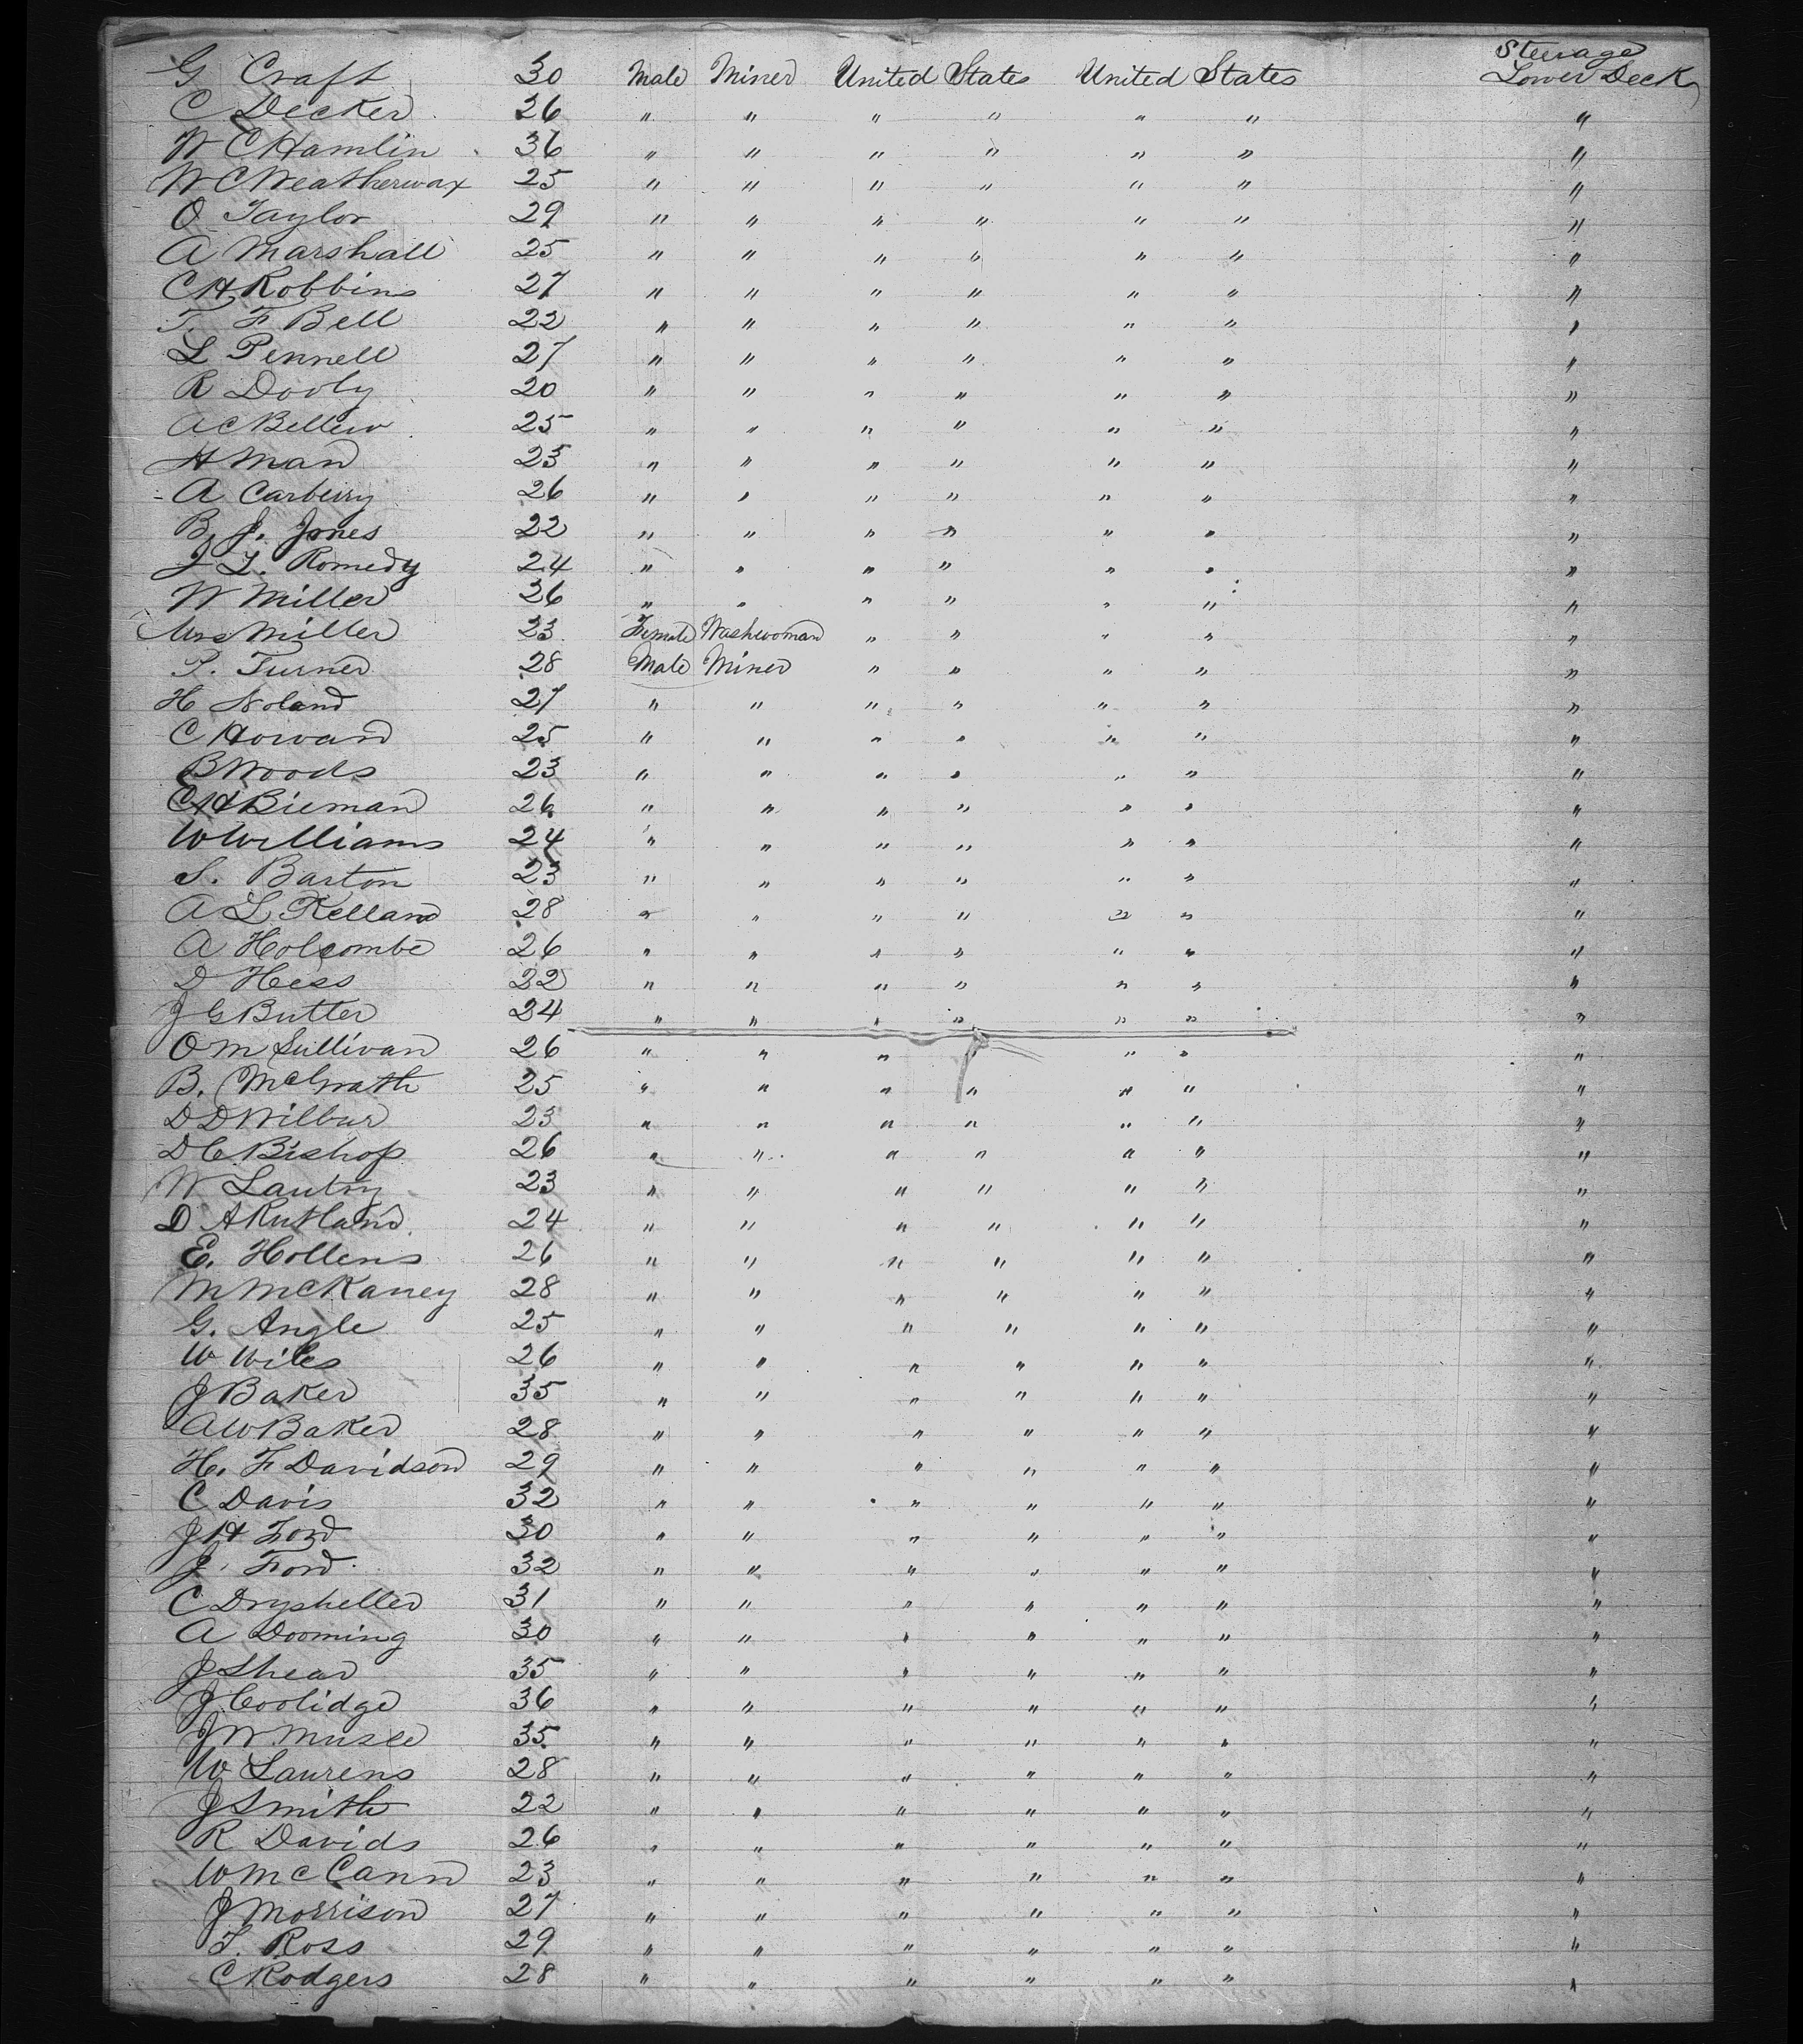 Steerage
G Craft 30 Male Miner United States United States Lower Deck
C Decker 26 " " " " " " "
W C Hamlin 36 " " " " " " "
W C Weatherwax 25 " " " " " " "
O Taylor 29 " " " " " " "
A Marshall 25 " " " " " " "
C H Robbins 27 " " " " " " "
T. F Bell 22 " " " " " " "
L Pennell 27 " " " " " " "
R Dooly 20 " " " " " " "
A C Bellew 25 " " " " " " "
H Man 25 " " " " " " "
A Carberry 26 " " " " " " "
B. J. Jones 22 " " " " " " "
J L. Romedy 24 " " " " " " "
W Miller 26 " " " " " " "
Mrs Miller 23 Female Washwoman " " " " "
T. Turner 28 Male Miner " " " " "
H Noland 27 " " " " " " "
C Howard 25 " " " " " " "
B Woods 23 " " " " " " "
C H Bieman 26 " " " " " " "
W Williams 24 " " " " " " "
S. Barton 23 " " " " " " "
A L Kelland 28 " " " " " " "
A Holcombe 26 " " " " " " "
D Hess 22 " " " " " " "
J G Butler 24 " " " " " " "
O M Sullivan 26 " " " " " " "
B. McGrath 25 " " " " " " "
D D Wilbur 23 " " " " " " "
D C Bishop 26 " " " " " " "
W Lautry 23 " " " " " " "
D A Rutland 24 " " " " " " "
E. Hollens 26 " " " " " " "
M McKaney 28 " " " " " " "
G. Angle 25 " " " " " " "
W Wiles 26 " " " " " " "
J Baker 35 " " " " " " "
A W Baker 28 " " " " " " "
H. F Davidson 29 " " " " " " "
C Davis 32 " " " " " " "
J H Ford 30 " " " " " " "
J. Ford 32 " " " " " " "
C Drysheller 31 " " " " " " "
A Dooming 30 " " " " " " "
J Shear 35 " " " " " " "
J Coolidge 36 " " " " " " "
J W 35 " " " " " " "
W Laurens 28 " " " " " " "
J Smith 22 " " " " " " "
R Davids 26 " " " " " " "
W McCann 23 " " " " " " "
J Morrison 27 " " " " " " "
T. Ross 29 " " " " " " "
C Rodgers 28 " " " " " " "